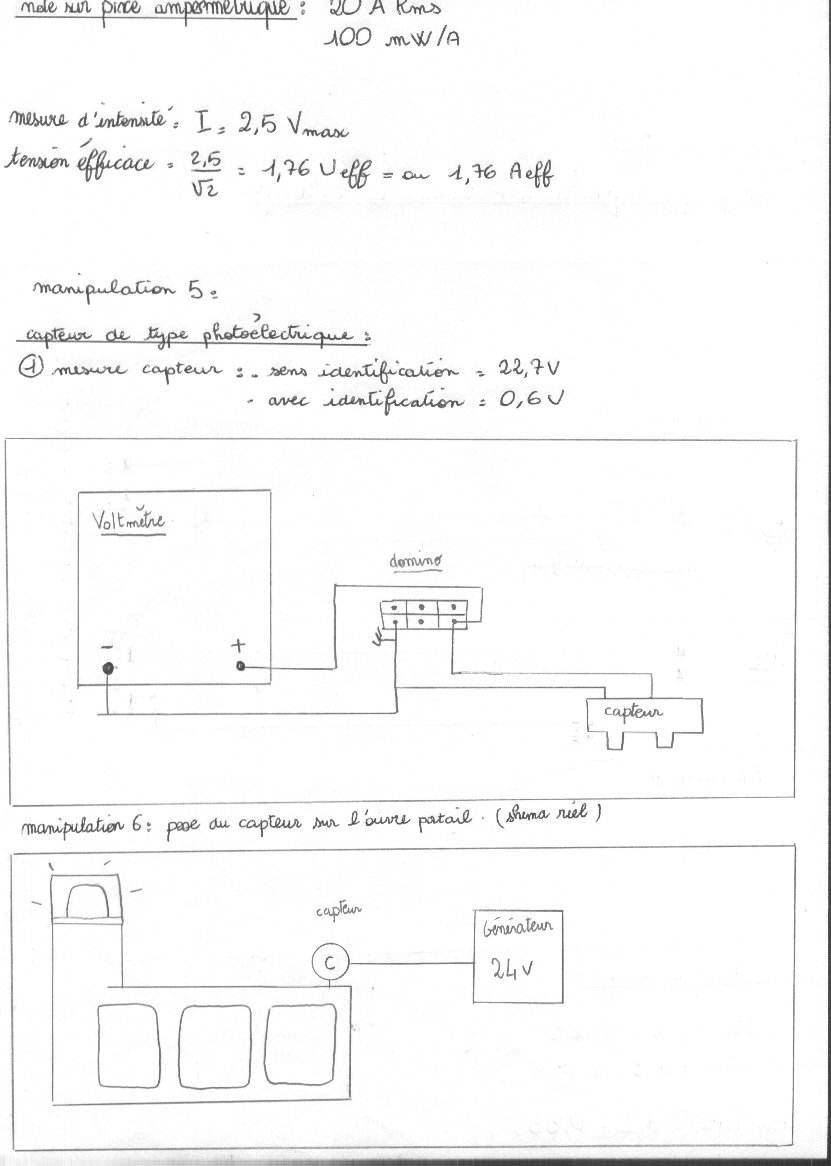 note sur pince ampèrmétrique : 20 A Rms
100 mW/A
mesure d'intensité = I = 2,5 Vmax
tension éfficace = 2,5/√2 = 1,76 Ueff = ou 1,76 Aeff
manipulation 5 :
capteur de type photoélectrique :
① mesure capteur : - sens identification = 22,7V
- avec identification = 0,6V
Voltmètre
domino
- +
capteur
manipulation 6 : pose du capteur sur l'ouvre patail. (shema réel)
capteur
Générateur
C
24V